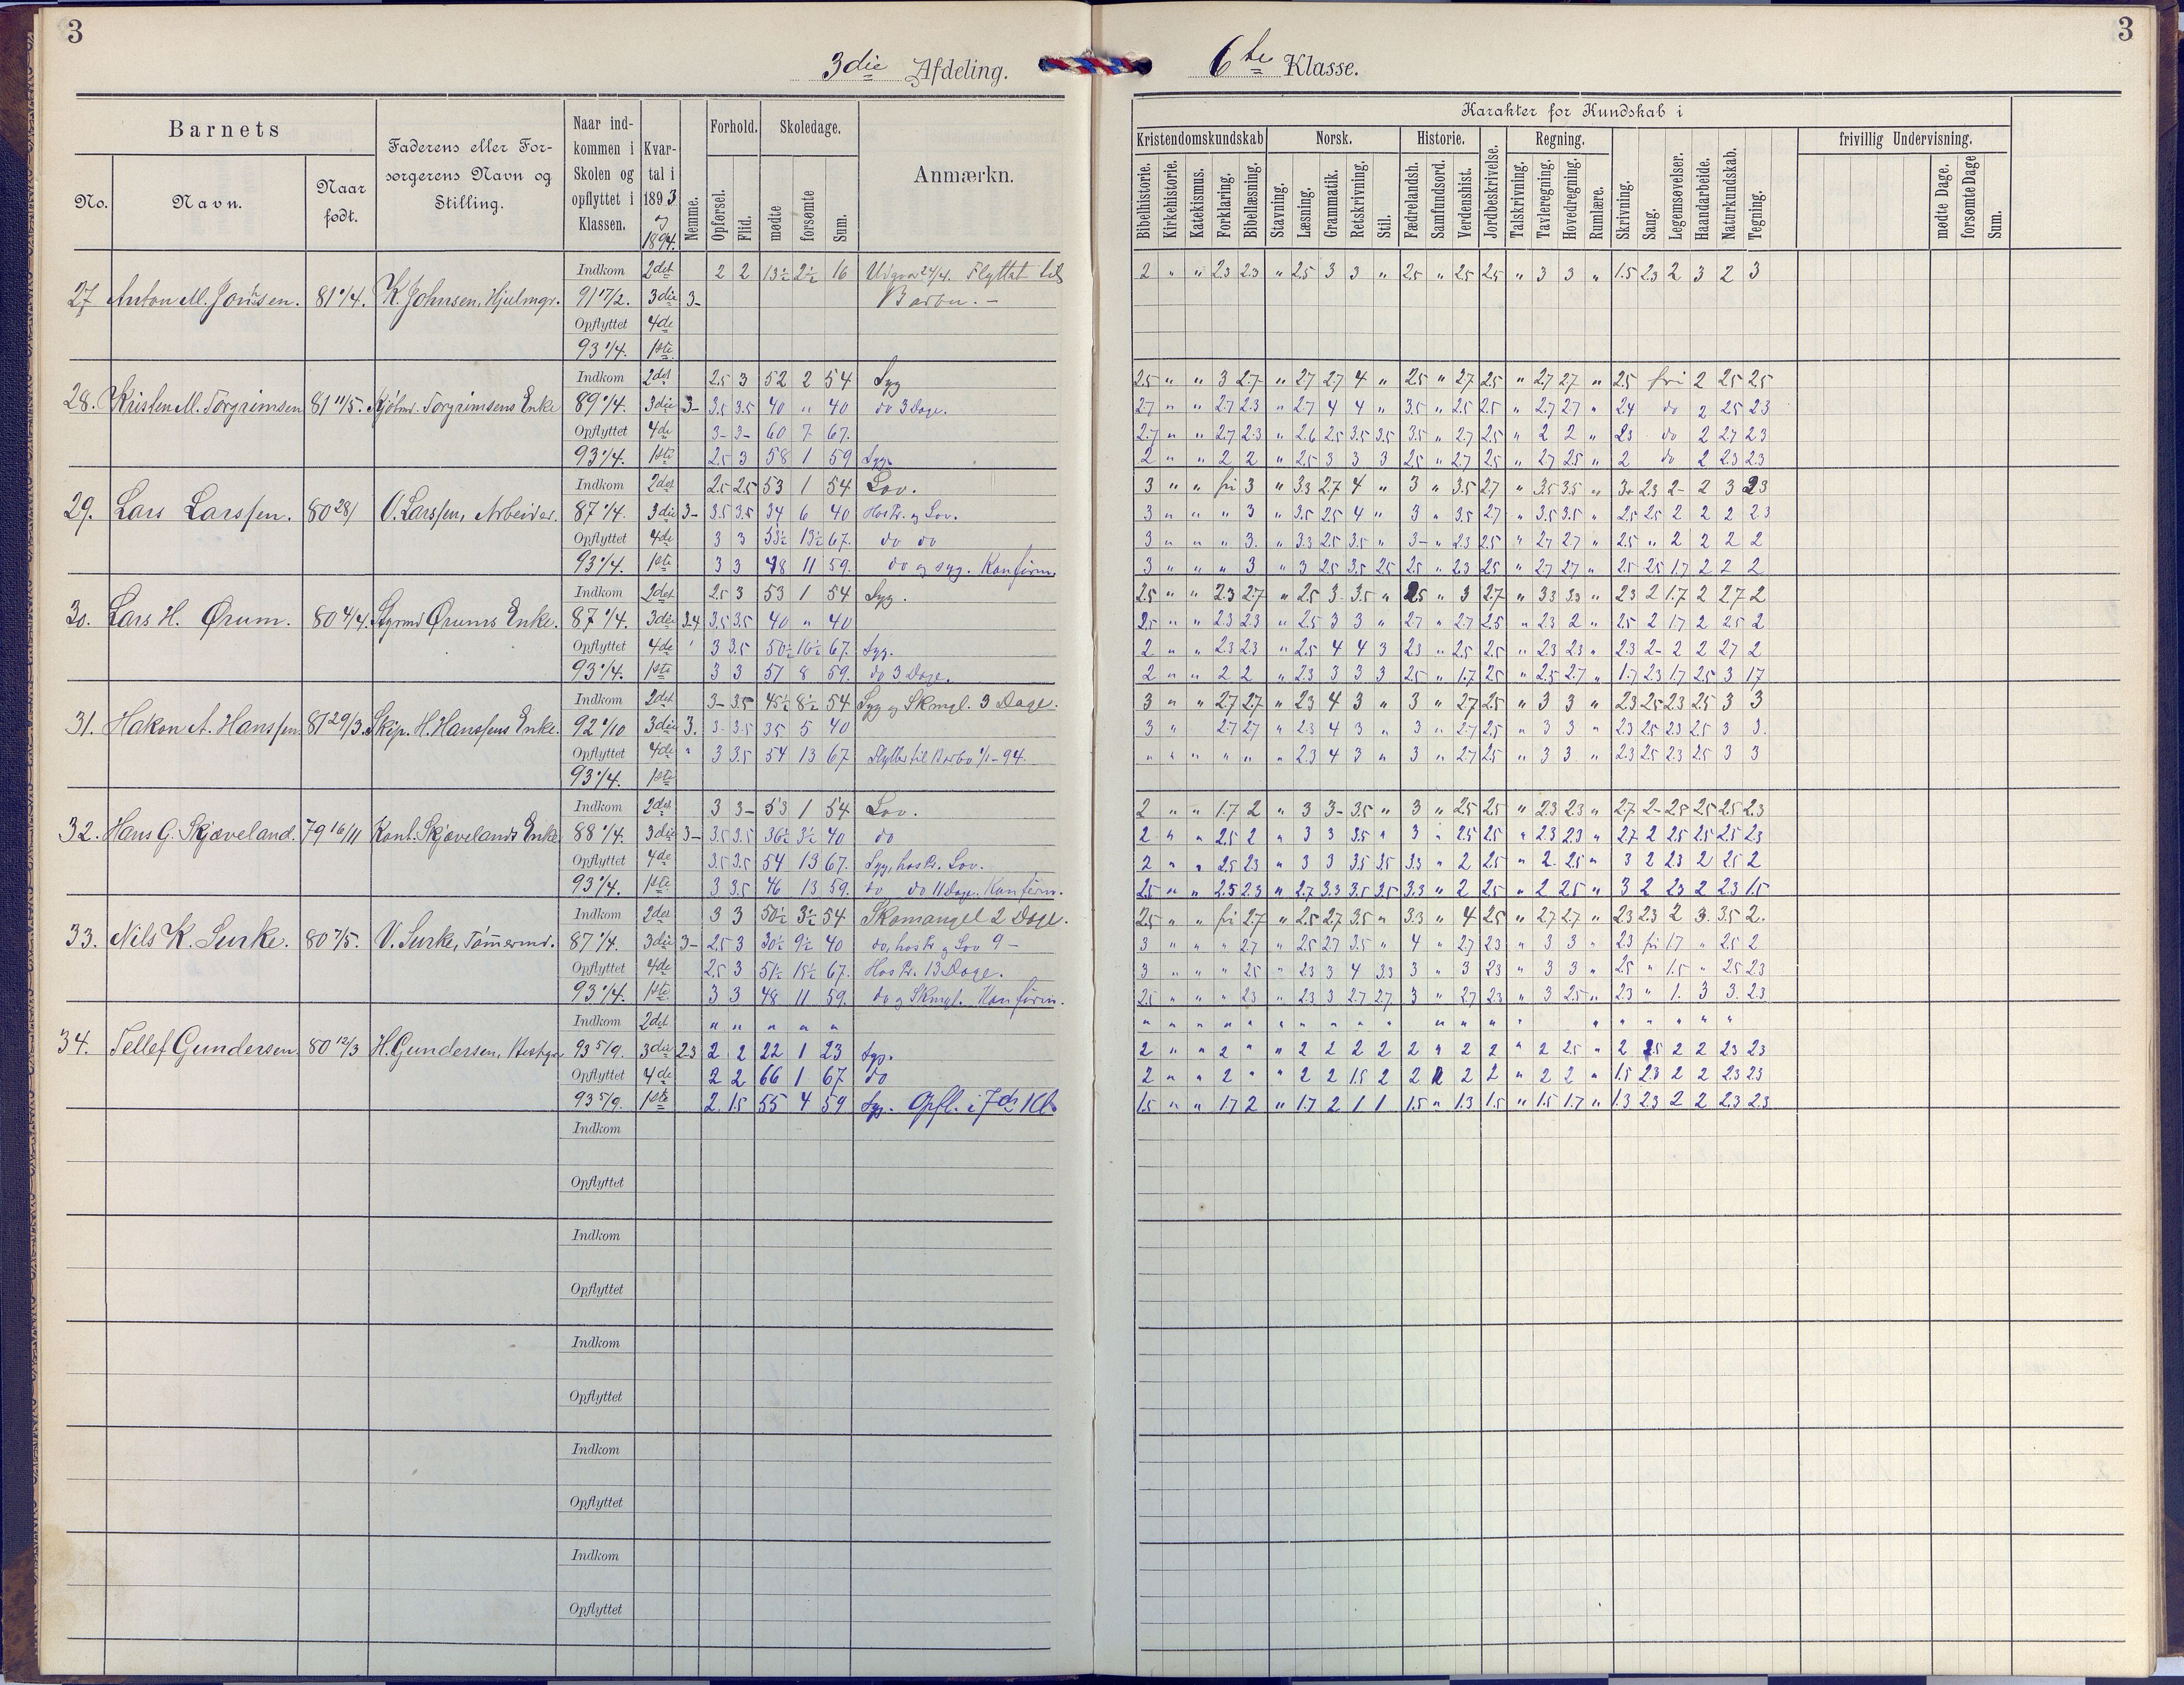 3
3die Afdeling.
6te Klasse.
3
Barnets
No.
Navn.
Naar født.
Faderens eller Forsørgerens Navn og Stilling.
Naar indkommen i Skolen og opflyttet i Klassen.
Kvartal i 1893 og 1894.
Nemme.
Forhold.
Opførsel.
Flid.
Skoledage.
mødte
forsømte
Sum.
Anmærkn.
Karakter for Kundskab i
Kristendomskundskab
Bibelhistorie.
Kirkehistorie.
Katekismus.
Forklaring.
Bibellæsning.
Norsk.
Stavning.
Læsning.
Grammatik.
Retskrivning.
Stil.
Historie.
Fædrelandsh.
Samfundsord.
Verdenshist.
Jordbeskrivelse.
Regning.
Talskrivning.
Tavleregning.
Hovedregning.
Rumlære.
Skrivning.
Sang.
Legemsøvelser.
Haandarbeide.
Naturkundskab.
Tegning.
frivillig Undervisning.
mødte Dage.
forsømte Dage
Sum.
Indkom 2det 2 2 13½ 2½ 16 Udgaar 24/4. Flyttet til
27 Anton M. Johnsen. 81 1/4. K. Johnsen, Hjulmgr. 91 17/2. 3die 3- Barbu. -
Opflyttet 4de
93 1/4. 1ste
Indkom 2det 2.5 3 52 2 54 Syg
28. Kristen M. Torgrimsen 81 11/5. Torgrimsens Enke 89 1/4. 3die 3- 3.5 3.5 40 " 40 do 3 Dage.
Opflyttet 4de 3- 3- 60 7 67.
93 1/4. 1ste 2.5 3 58 1 59 Syg.
Indkom 2det 2.5 2.5 53 1 54 Lov.
29. Lars Larssen. 80 28/ O. Larssen, Arbeider. 87 1/4. 3die 3- 3.5 3.5 34 6 40 Hostr. og Lov.
Opflyttet 4de 3 3 53½ 13½ 67. do do
93 1/4. 1ste 3 3 48 11 59. do og syg. Konfirm.
Indkom 2det 2.5 3 53 1 54 Syg.
30. Lars H. Ørum. 80 4/4. Styrmd Ørums Enke. 87 1/4. 3die 3-4 3.5 3.5 40 " 40
Opflyttet 4de 3 3.5 50½ 16½ 67. Syg.
93 1/4. 1ste 3 3 51 8 59. do 3 Dage.
Indkom 2det 3- 3.5 45½ 8½ 54 Syg og Skmgl. 3 Dage.
31. Hakon A. Hanssen. 81 29/3. Skip. H. Hanssens Enke. 92 1/10 3die 3. 3- 3.5 35 5 40
Opflyttet 4de " 3 3.5 54 13 67 Flyttet til Barbo 1/1-94.
93 1/4. 1ste
Indkom 2det 3 3- 53 1 54 Lov.
32. Hans G. Skjæveland. 79 16/11 Kont. Skjævelands Enke 88 1/4. 3die 3- 3.5 3.5 36½ 3½ 40 do
Opflyttet 4de 3.5 3.5 54 13 67. Syg, hostr. Lov.
93 1/4. 1ste 3 3.5 46 13 59. do do 11 Dage. Konfirm.
Indkom 2det 3 3 50½ 3½ 54 Skomangel 2 Dage.
33. Nils K. Surke. 80 7/5. V. Surke, Tømmermd. 87 1/4. 3die 3- 2.5 3 30½ 9½ 40 do, hostr og Lov 9 -
Opflyttet 4de 2.5 3 51½ 15½ 67. Hostr. 13 Dage.
93 1/4. 1ste 3 3 48 11 59. do og Skmgl. Konfirm.
Indkom 2det " " " " "
34. Tellef Gundersen. 80 12/3 H. Gundersen, 93 5/9. 3die 2-3 2 2 22 1 23 Syg.
Opflyttet 4de 2 2 66 1 67 do
93 5/9. 1ste 2 1.5 55 4 59 Syg. Opfl. i 7de Kl.
Indkom
Opflyttet
Indkom
Opflyttet
Indkom
Opflyttet
Indkom
Opflyttet
Indkom
Opflyttet
2 " " 2.3 2.3 " 2.5 3 3 " 2.5 " 2.5 2.5 " 3 3 " 1.5 2.3 2 3 2 3
2.5 " " 3 2.7 " 2.7 2.7 4 " 2.5 " 2.7 2.5 " 2.7 2.7 " 2.5 fri 2 2.5 2.5
2.7 " " 2.7 2.3 " 2.7 4 4 " 3.5 " 2.5 2.5 " 2.7 2.7 " 2.4 do 2 2.5 2.3
2.7 " " 2.7 2.3 " 2.6 2.5 3.5 3.5 3.5 " 2.7 2.5 " 2 2 " 2.3 do 2 2.7 2.3
2 " " 2 2 " 2.5 3 3 3 2.5 " 2.7 2.5 " 2.7 2.5 " 2 do 2 2.3 2.3
3 " " fri 3 " 3.3 2.7 4 " 3 " 3.5 2.7 " 3.5 3.5 " 3+ 2.3 2- 2 3 2.3
3 " " " 3 " 3.5 2.5 4 " 3 " 3.5 2.7 " 3.5 3.5 " 2.5 2.5 2 2 2 2.3
3 " " " 3. " 3.3 2.5 3.5 " 3- " 2.3 2.5 " 2.7 2.7 " 2.5 " 2 2 2 2
3 " " " 3 " 3 2.5 3.5 2.5 2.5 " 2.3 2.5 " 2.7 2.7 " 2.5 2.5 1.7 2 2 2
2.5 " " 2.3 2.7 " 2.5 3 3.5 " 2.5 " 3 2.7 " 3.3 3.3 " 2.3 2 1.7 2 2.7 2
2.5 " " 2.3 2.3 " 2.5 3 3 " 2.7 " 2.7 2.5 " 2.3 2 " 2.5 2 1.7 2 2.5 2
2 " " 2.3 2.3 " 2.5 4 4 3 2.3 " 2.5 2.5 " 2.3 2.3 " 2.3 2- 2 2 2.7 2
2 " " 2 2 " 2.3 3 3 3 2.5 " 1.7 2.5 " 2.5 2.7 " 1.7 2.3 1.7 2.5 3 1.7
3 " " 2.7 2.7 " 2.3 4 3 " 3 " 2.7 2.5 " 3 3 " 2.3 2.5 2.3 2.5 3 3
3 " 2.7 2.7 " 2.3 4 3 " 3 " 2.7 2.5 " 3 3 " 2.3 2.5 2.3 2.5 3 3.
" " " " " " 2.3 4 3 " 3 " 2.7 2.5 " 3 3 " 2.3 2.5 2.3 2.5 3 3
2 " " 1.7 2 " 3 3- 3.5 " 3 " 2.5 2.5 " 2.3 2.3 " 2.7 2- 2.5 2.5 2.5 2.3
2 " " 2.5 2 " 3 3 3.5 " 3 " 2.5 2.5 " 2.3 2.3 " 2.7 2 2.5 2.5 2.5 2.3
2 " " 2.5 2.3 " 3 3 3.5 3.5 3.3 " 2 2.5 " 2 2.5 " 3 2 2.3 2 2.5 2
2.5 " " 2.5 2.3 " 2.7 3.3 3.5 2.5 3.3 " 2 2.5 " 2 2.5 " 3 2 2.3 2 2.3 1.5
2.5 " " fri 2.7 " 2.5 2.7 3.5 " 3.3 " 4 2.5 " 2.7 2.7 " 2.3 2.3 2 3 3.5 2.
3 " " " 2.7 " 2.5 2.7 3.5 " 4 " 2.7 2.3 " 3 3 " 2.3 fri 1.7 " 2.5 2
3 " " " 2.5 " 2.3 3 4 3.3 3 " 3 2.3 " 3 3 " 2.5 " 1.5 " 2.5 2.3
2.5 " " " 2.3 " 2.3 3 2.7 2.7 3 " 2.7 2.3 " 3 2.5 " 2.3 " 1. 3 3. 2.3
" " " " " " " " " " " " " " " " " " " " "
2 " " 2 " " 2 2 2 2 2 " 2 2 " 2 2.5 " 2 2.5 2 2 2.3 2.3
2 " " 2 " " 2 2 1.5 2 2 " 2 2 " 2 2 " 1.5 2.3 2 2 2.3 2.3
1.5 " " 1.7 2 " 1.7 2 1 1 1.5 " 1.3 1.5 " 1.5 1.7 " 1.3 2.3 2 2 2.3 2.3